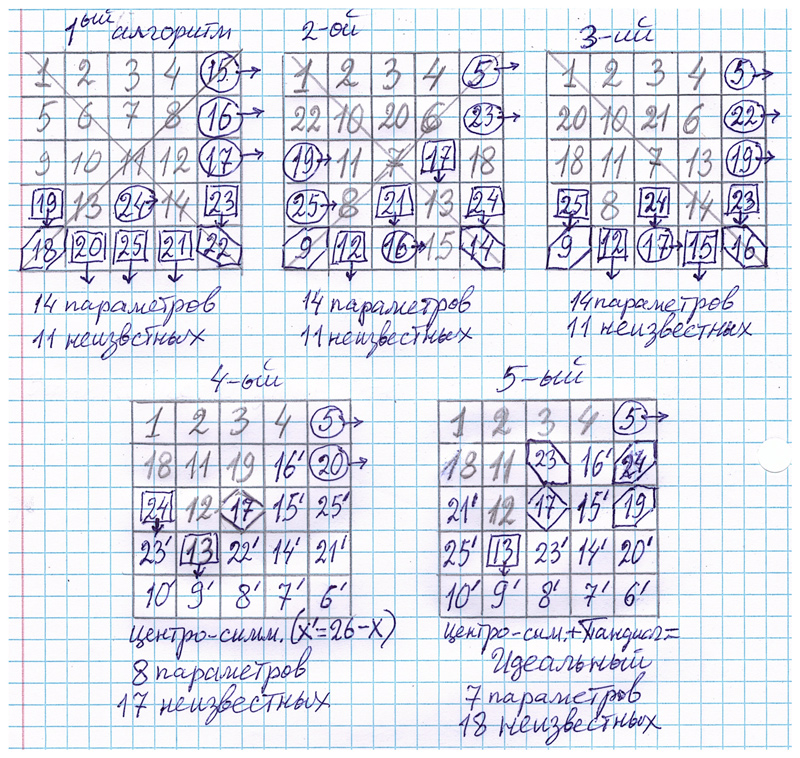 1ый алгоритм
2-ой
3-ий
1 2 3 4 15
5 6 7 8 16
9 10 11 12 17
19 13 24 14 23
18 20 25 21 22
1 2 3 4 5
22 10 20 6 23
19 11 7 17 18
25 8 21 13 24
9 12 16 15 14
1 2 3 4 5
20 10 21 6 22
18 11 7 13 19
25 8 24 14 23
9 12 17 15 16
14 параметров
11 неизвстных
14 параметров
11 неизвестных
14 параметров
11 неизвестных
4-ый
5-ый
1 2 3 4 5
18 11 19 16' 20
24 12 17 15' 25'
23' 13 22' 14' 21'
10' 9' 8' 7' 6'
1 2 3 4 5
18 11 23 16' 24
21' 12 17 15' 19
25' 13 23' 14' 20'
10' 9' 8' 7' 6'
центро-симм. (x'=26-x)
8 параметров
17 неизвестных
центро-сим.+Пандиаг=
Идеальный
7 параметров
18 неизвестных